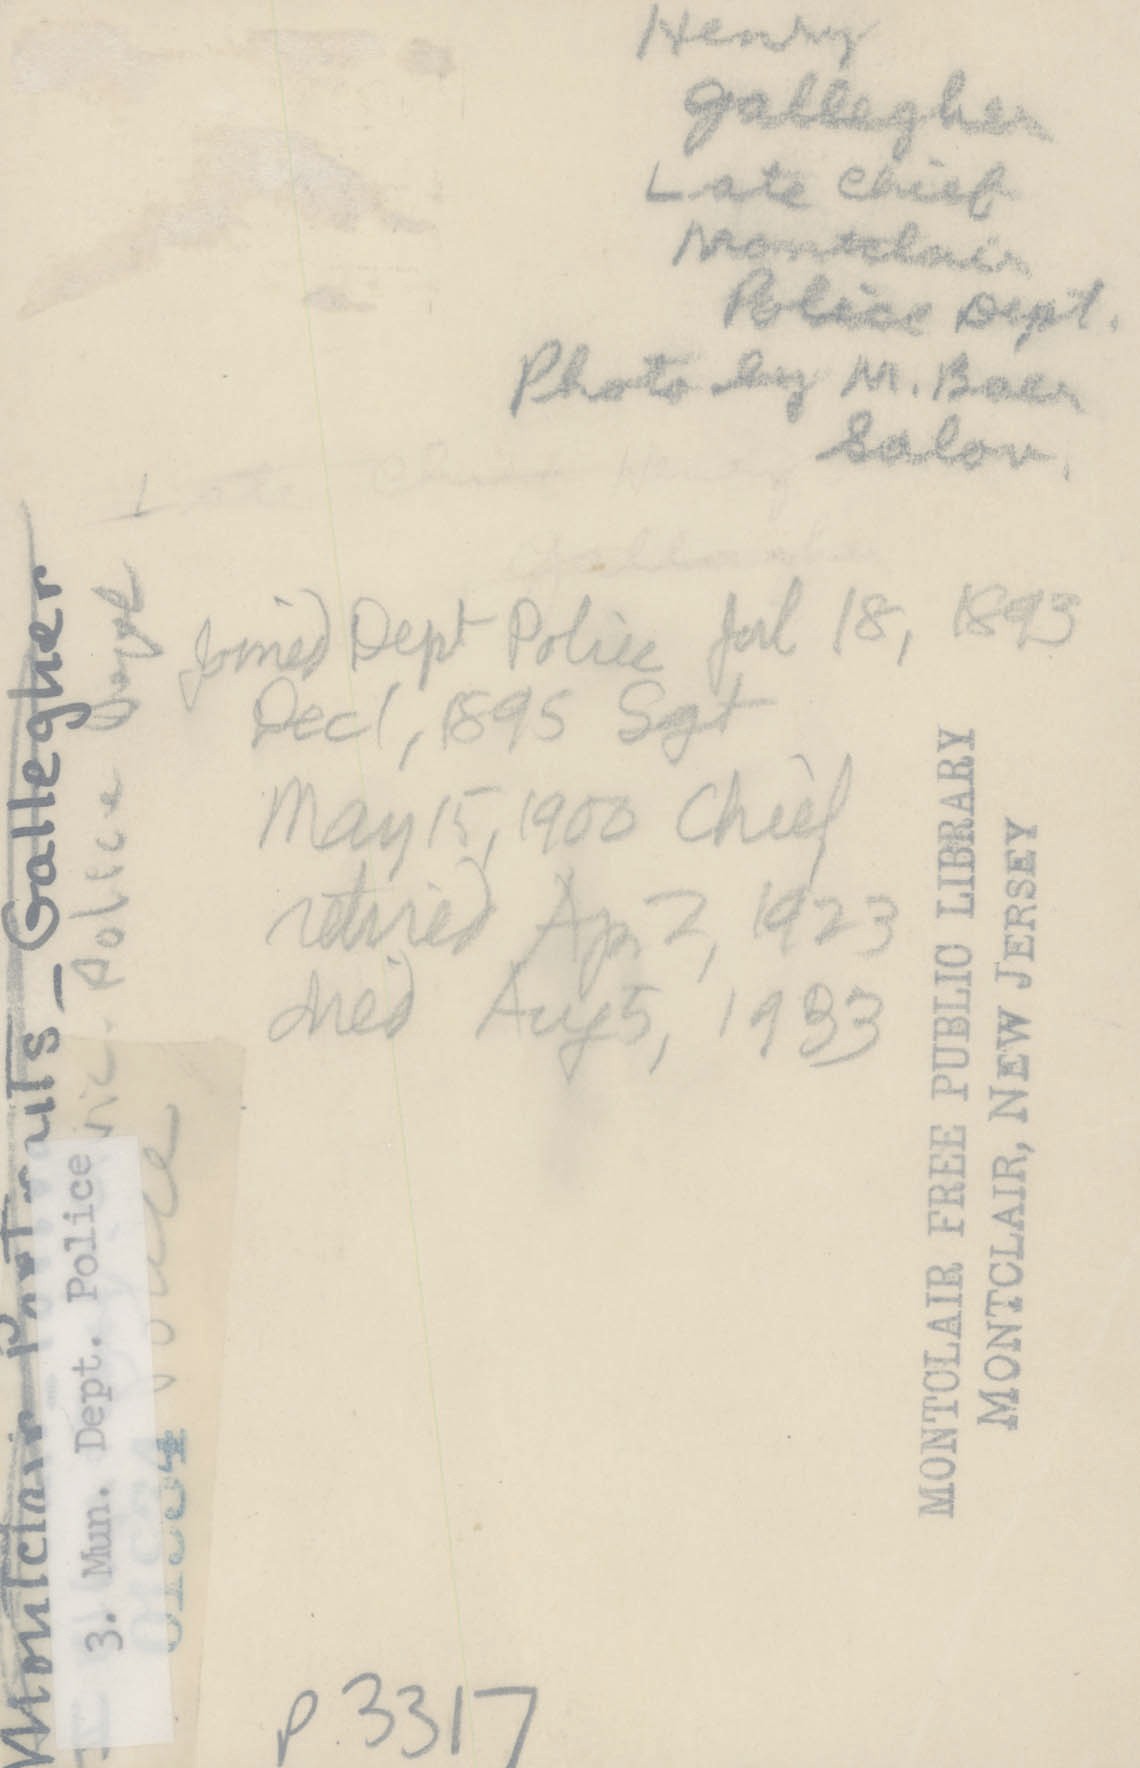 Henry
Gallegher
Late Chief
Montclair
Police Dept.
Photo by M. Baer
Salon.
Late Chief Henry
Gallegher
Joined Dept Police Jul 18, 1893
Dec 1, 1895 Sgt
May 15, 1900 Chief
retired Apr 2, 1923
died Aug 5, 1933
MONTCLAIR FREE PUBLIC LIBRARY
MONTCLAIR, NEW JERSEY
Montclair Portraits - Gallegher
Police Dept
3. Mun. Dept. Police
Police
P 3317